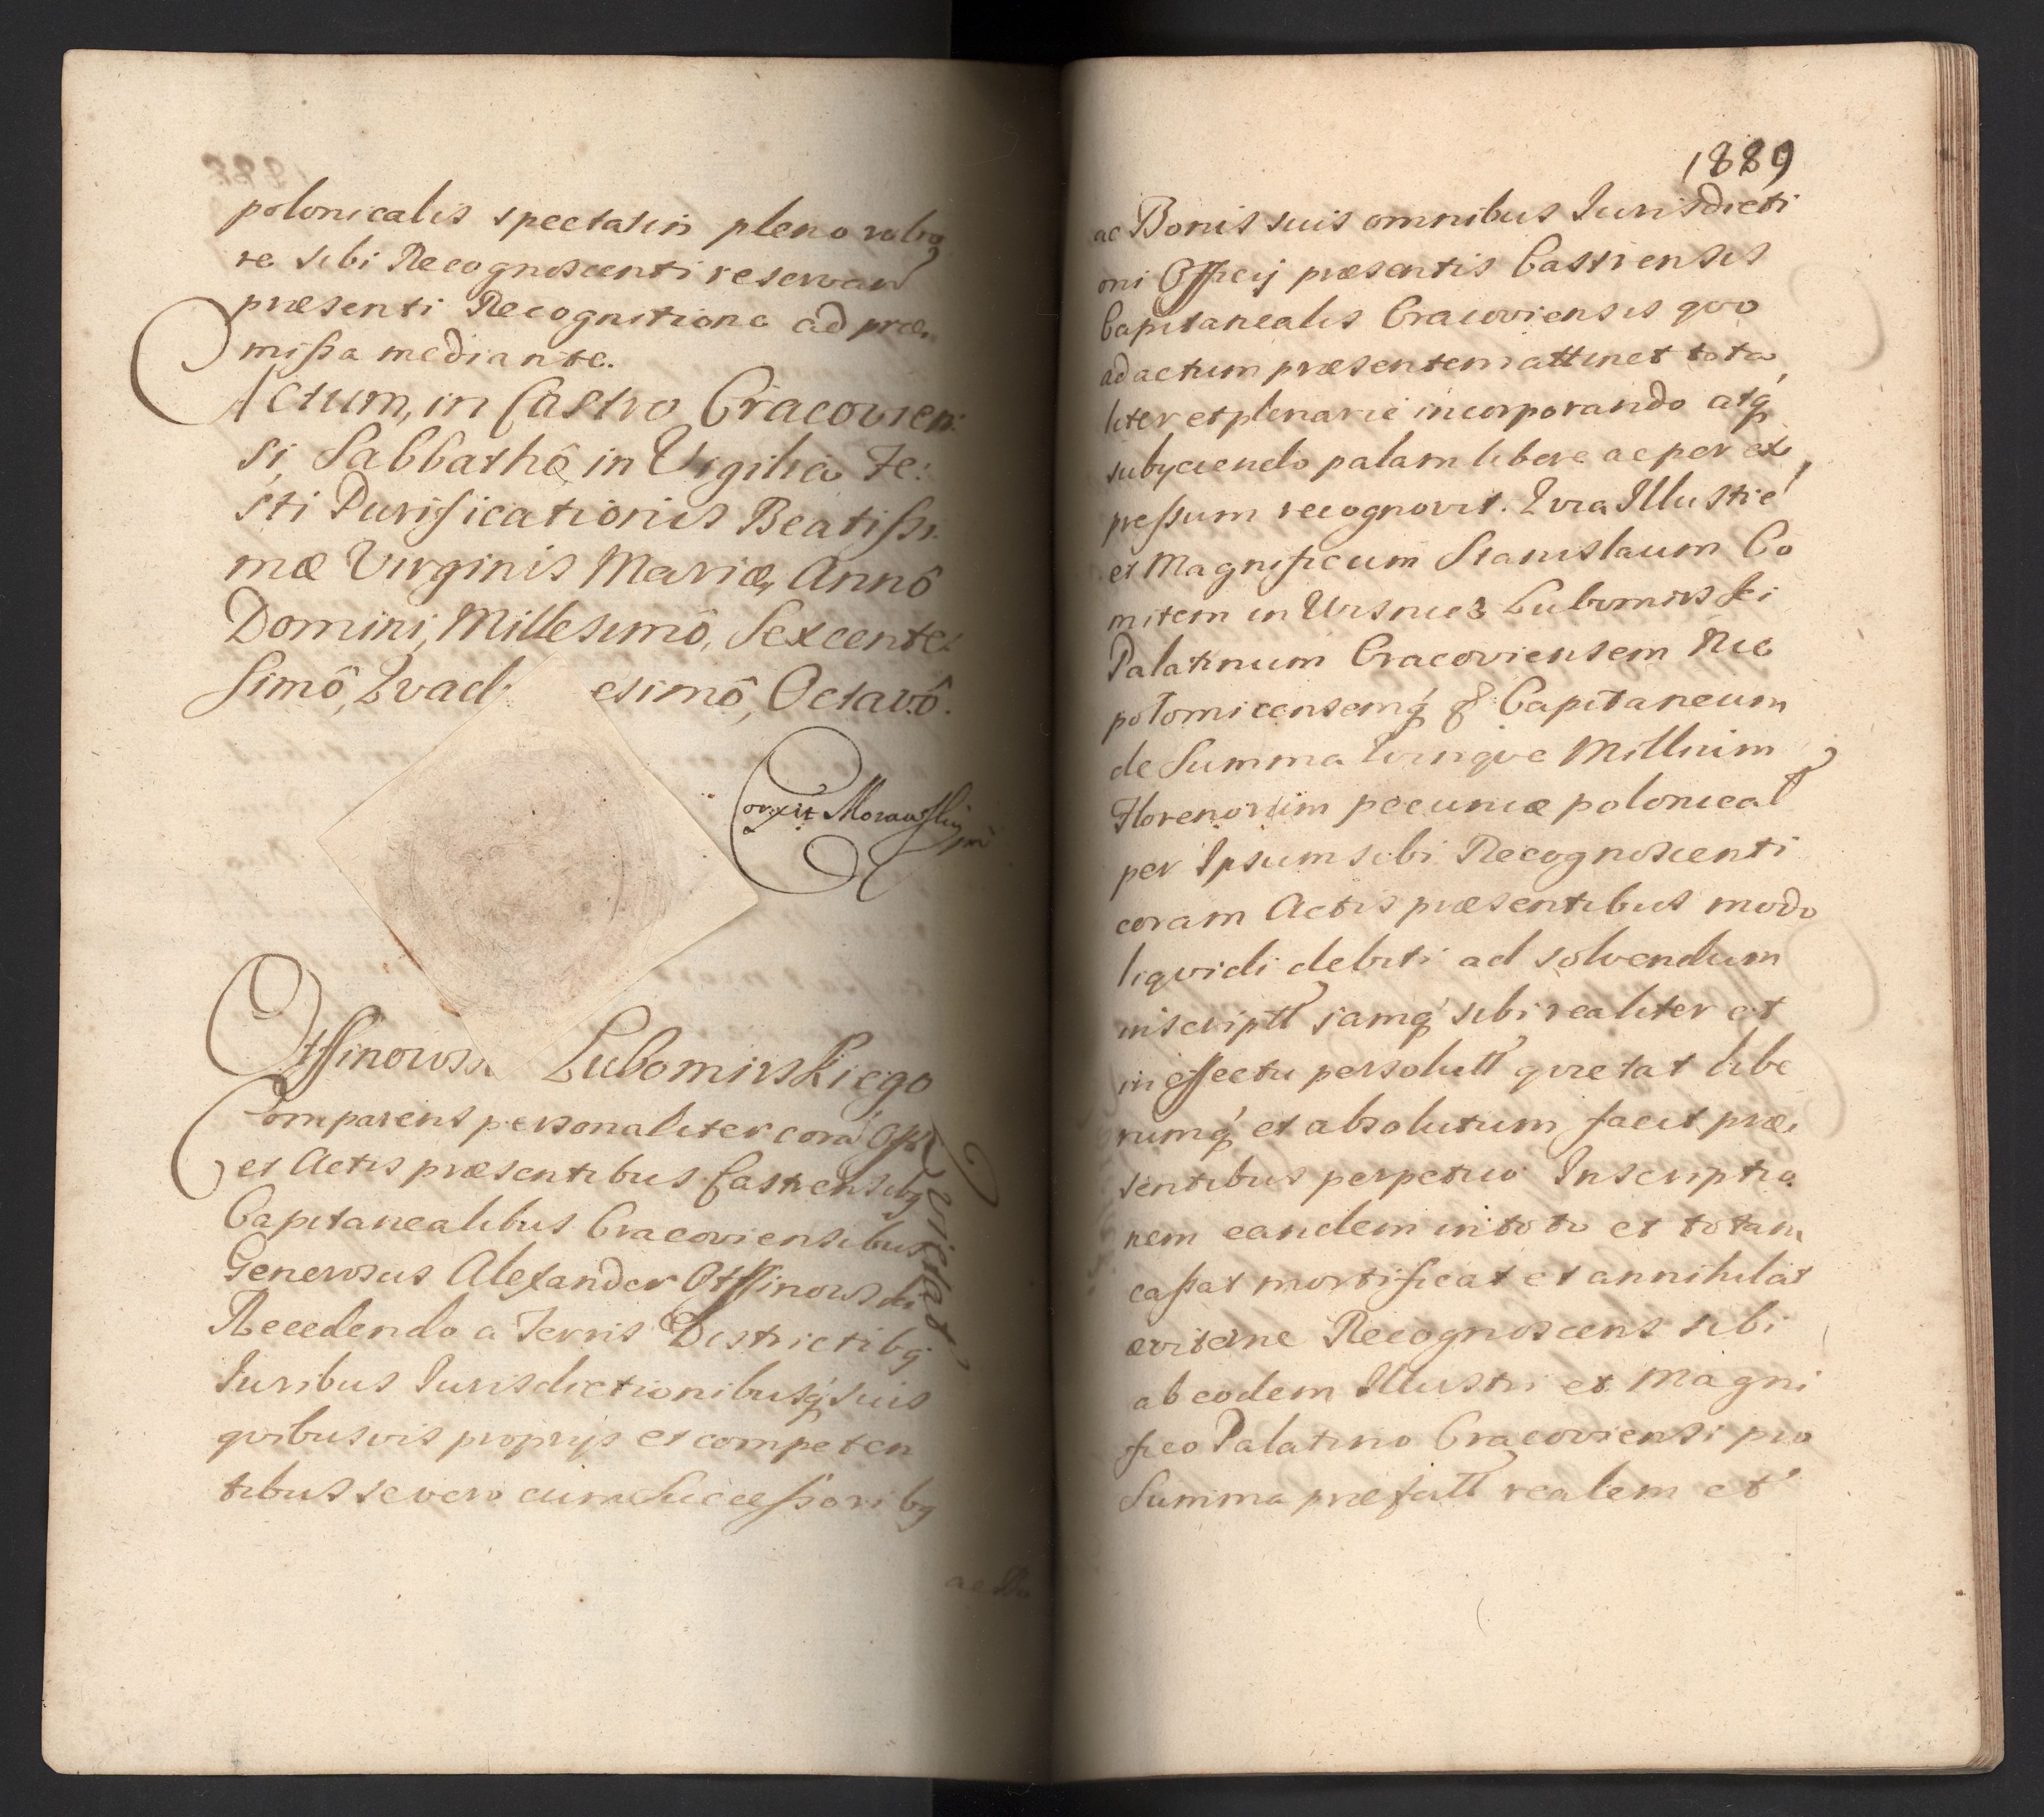 polonicalis spectatin pleno robo
re sibi Recognoscenti reservan
præsenti Recognitione ad præ
missa mediante.
Actum, in Castro Cracovien:
si, Sabbathô in Vigilia Fe:
sti Purificationis Beatissi
mæ Virginis Mariæ, Annô
Domini, Millesimô, Sexcente:
simô, Qvad esimô, Octavô.
Correxit Morawsky mp
Otffinowski Lubomirskiego
Comparens personaliter corã Offo
et Actis præsentibus Castrensibq
Capitanealibus Cracoviensibus
Generosus Alexander Otffinowski
Recedendo a Terris Districtibq
Iuribus Iurisdictionibusq suis
qvibusvis proprijs et competen
tibus se vero cum Successoribq
Qvietat
ac Bo
1889
ac Bonis suis omnibus Iurisdicti
oni Officij præsentis Castrensis
Capitanealis Cracoviensis qvo
ad actum præsentem attinet tota
liter et plenarie incorporando atq
subyciendo palam libere ac per ex
pressum recognovit. Qvia Illustrē
et Magnificum Stanislaum Co
mitem in Wisnicz Lubomirski
Palatinum Cracoviensem Nie
polomicensemq & Capitaneum
de Summa Qvinqve Millium
Florenorum pecuniæ polonical
per Ipsum sibi Recognoscenti
coram Actis præsentibus modo
liqvidi debiti ad solvendum
inscriptt jamq sibi realiter et
in effectu persolutt qvietat libe
rumq et absolutum facit præ
sentibus perpetuo Inscriptio
nem eandem in toto et totam
cassat mortificat et annihilat
æviterne Recognoscens sibi
ab eodem Illustri et Magni
fico Palatino Cracoviensi pro
Summa præfatt realem et